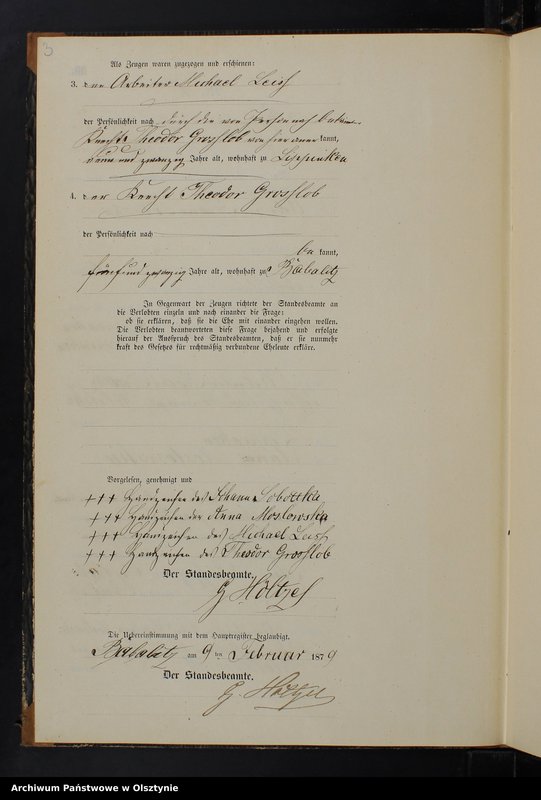 3
Als Zeugen waren zugezogen und erschienen:
3. der Arbeiter Michael Leiss
der Persönlichkeit nach durch den von Person nach bekannten
Knecht Theodor Grosslob von hier anerkannt,
und zwanzig Jahre alt, wohnhaft zu
4. der Knecht Theodor Grosslob
der Persönlichkeit nach
be kannt,
fünfund zwanzig Jahre alt, wohnhaft zu Babalitz
In Gegenwart der Zeugen richtete der Standesbeamte an
die Verlobten einzeln und nach einander die Frage:
ob sie erklären, daß sie die Ehe mit einander eingehen wollen.
Die Verlobten beantworteten diese Frage bejahend und erfolgte
hierauf der Ausspruch des Standesbeamten, daß er sie nunmehr
kraft des Gesetzes für rechtmäßig verbundene Eheleute erkläre.
Vorgelesen, genehmigt und
+++ Handzeichen des Johann Sobottka
+++ Handzeichen der Anna Moslowska
+++ Handzeichen des Michael Leiss
+++ Handzeichen des Theodor Grosslob
Der Standesbeamte,
G Höltzel
Die Uebereinstimmung mit dem Hauptregister beglaubigt.
Babalitz am 9 ten Februar 1879
Der Standesbeamte.
G. Höltzel
Archiwum Państwowe w Olsztynie